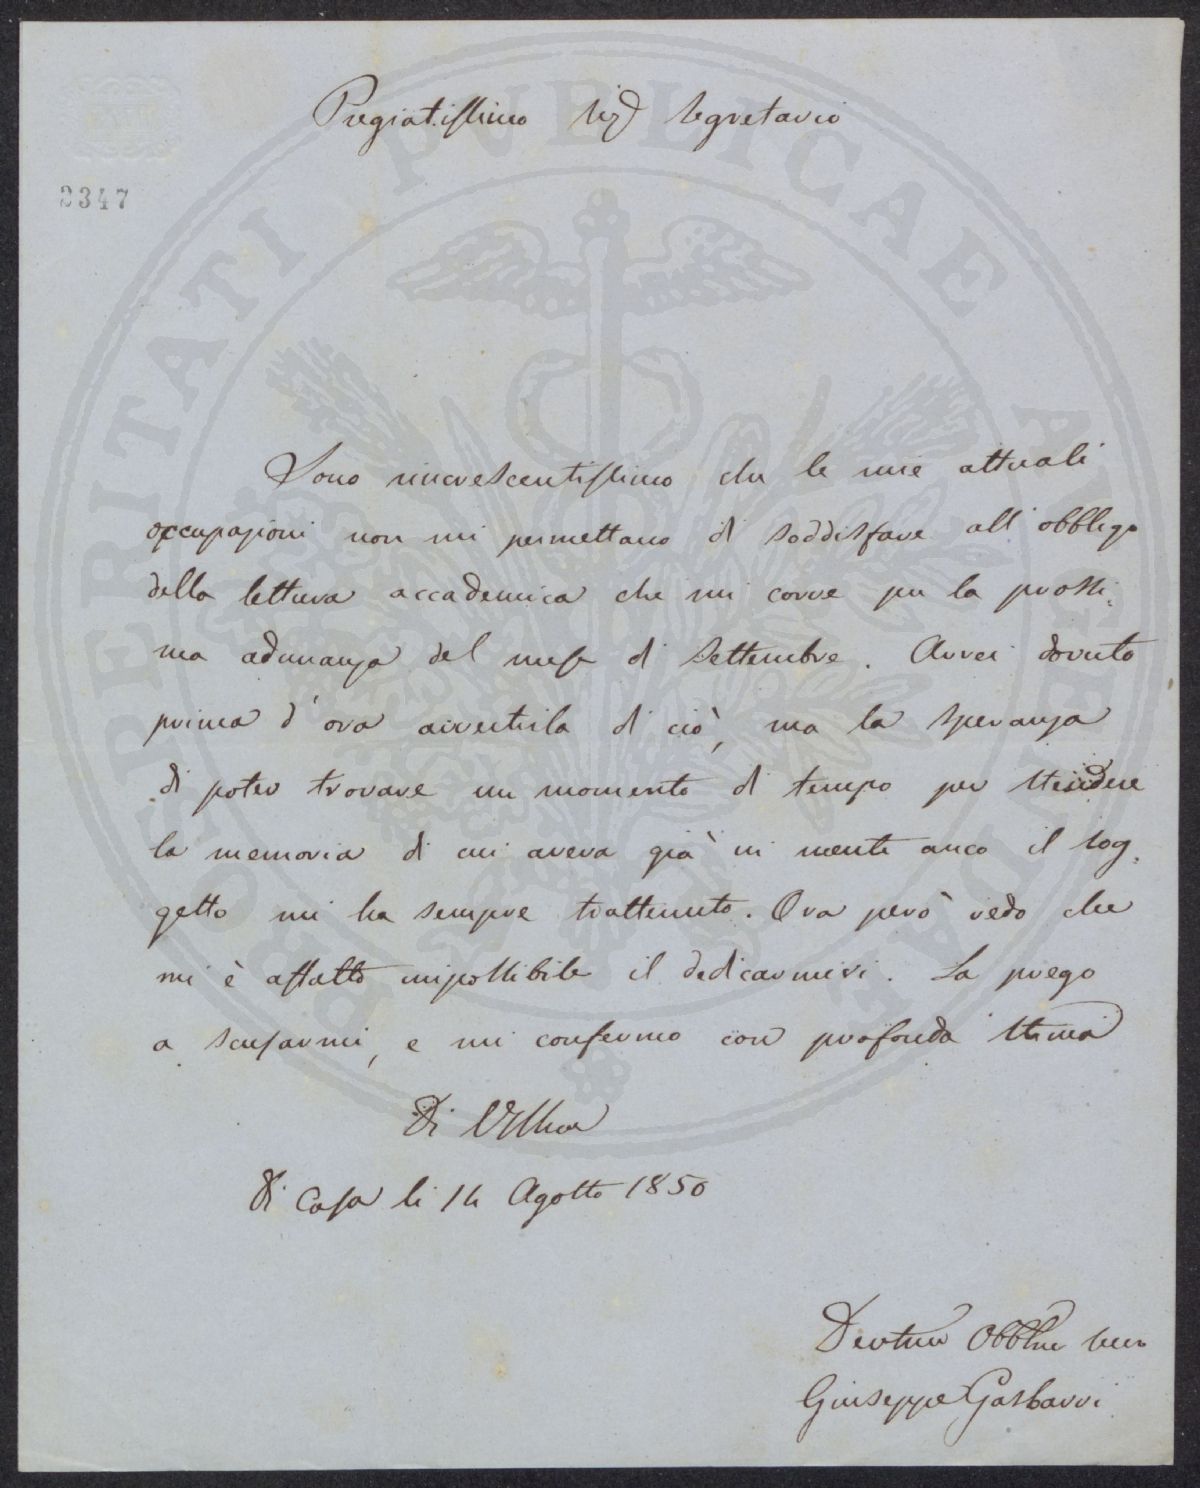 Pregiatissimo Sig.r Segretario
2347
Sono rincrescentissimo che le mie attuali
occupazioni non mi permettano di soddisfare all'obbligo
della lettura accademica che mi corre per la prossi-
ma adunanza del mese di Settembre. Avrei dovuto
prima d'ora avvertirla di ciò, ma la speranza
di poter trovare un momento di tempo per stendere
la memoria di cui aveva già in mente anco il sog-
getto mi ha sempre trattenuto. Ora però vedo che
mi è affatto impossibile il dedicarmivi. La prego
a scusarmi, e mi confermo con profonda stima
Di VS Illma
Di Casa li 14 Agosto 1850
Devtmo Obblmo Serv
Giuseppe Gasbarri
PROSPERITATI PUBLICAE AUGENDAE